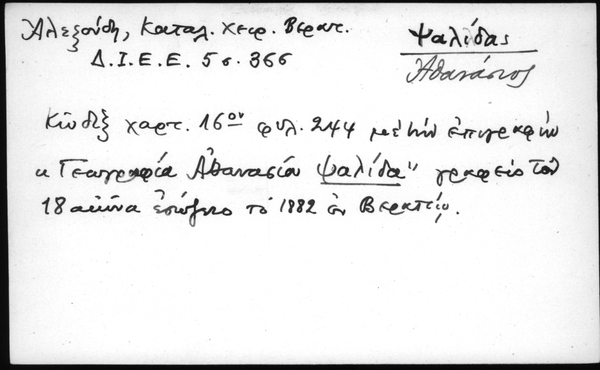 Ἀλεξούδη, Καταλ. χειρ. Βερατ.
Δ.Ι.Ε.Ε. 5 σ. 366
Ψαλίδας
Ἀθανάσιος
Κῶδιξ χαρτ. 16ον φυλ. 244 μὲ τὴν ἐπιγραφὴν
"Γεωγραφία Ἀθανασίου Ψαλίδα" γραφεὶς τὸν
18 αἰῶνα ἐσώζετο τὸ 1882 ἐν Βερατίῳ.